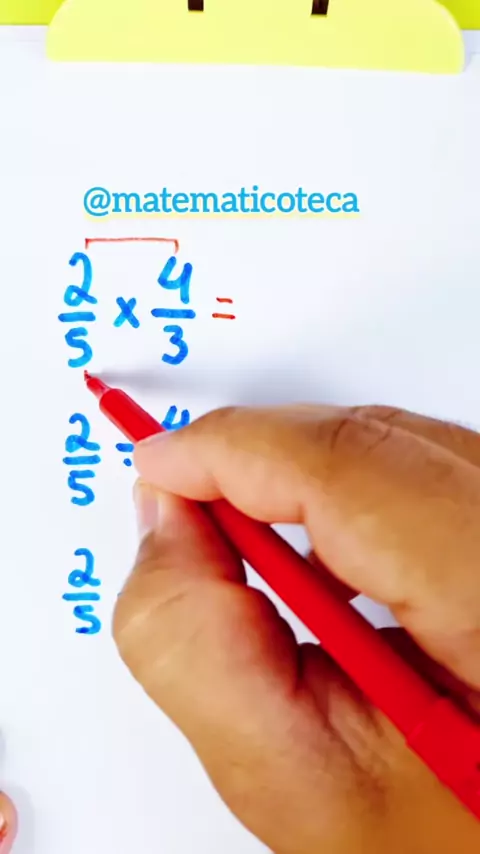 @matematicoteca
2/5 x 4/3 =
2/5 ÷ 4
2/5